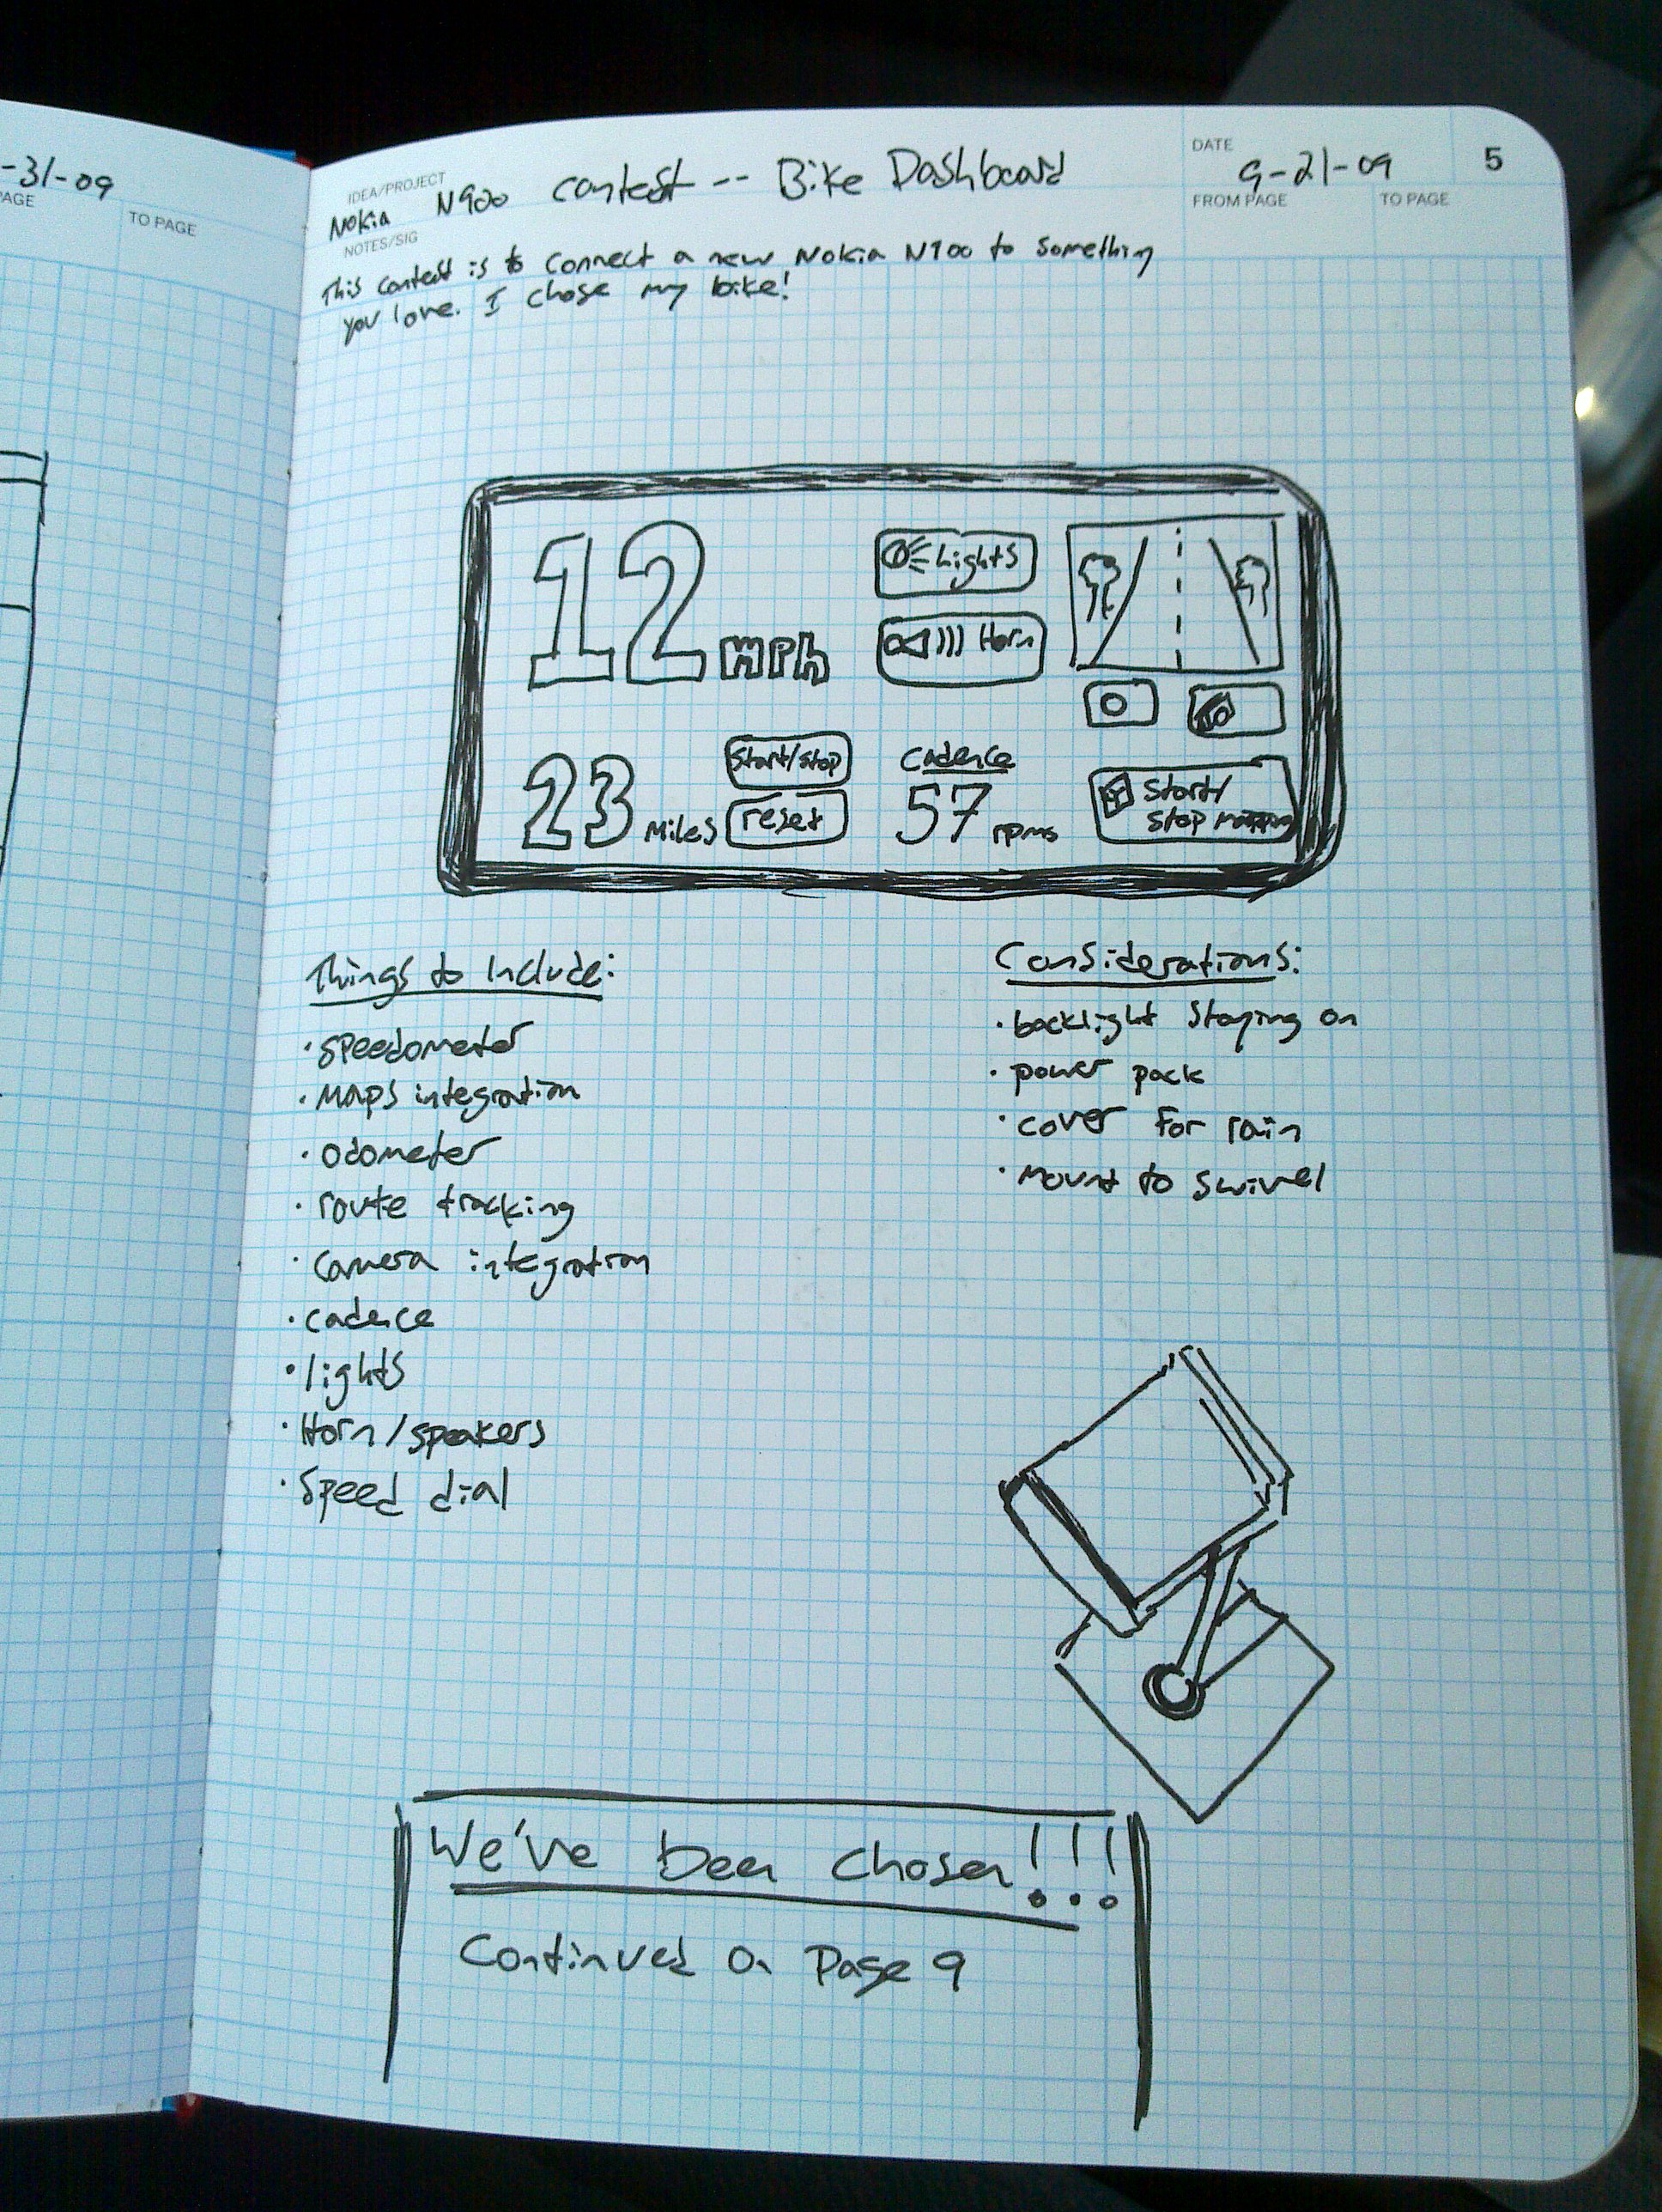 -31-09
PAGE
TO PAGE
IDEA/PROJECT
Nokia N900 contest -- Bike Dashboard
NOTES/SIG
DATE
9-21-09
5
FROM PAGE
TO PAGE
This contest is to connect a new Nokia N900 to something
you love. I chose my bike!
12 mph
Lights
Horn
23 Miles
Start/stop
reset
Cadence
57 rpms
Start/
Stop mapping
Things to Include:
• speedometer
• Maps integration
• odometer
• route tracking
• camera integration
• cadence
• lights
• Horn/speakers
• Speed dial
Considerations:
• backlight staying on
• power pack
• cover for rain
• Mount to swivel
We've been chosen!!!
Continued on Page 9